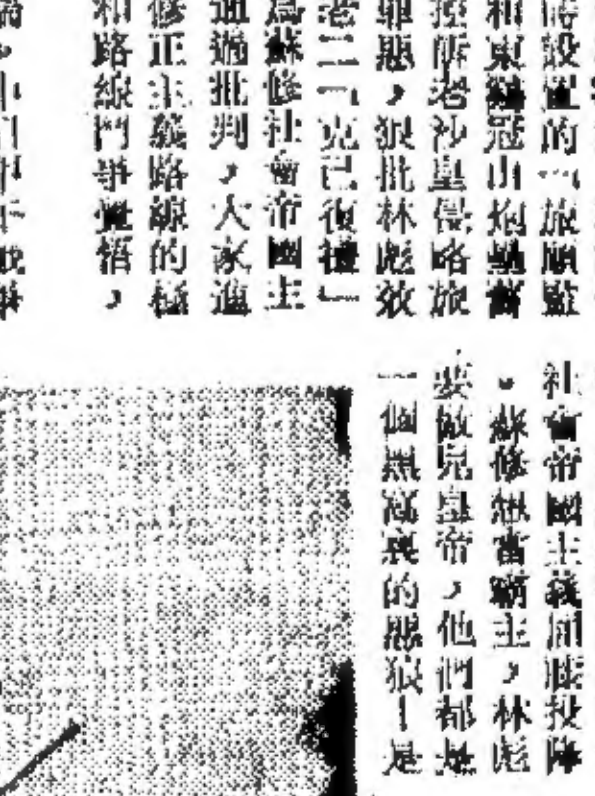 設置的「旅順監
和東雞冠山炮壘舊
控訴老沙皇侵略旅
罪惡，狠批林彪效
老二「克己復禮」
爲蘇修社會帝國主
通過批判，大家進
修正主義路線的極
和路線鬥爭覺悟，
社會帝國主義屈膝投降
。蘇修想當霸主，林彪
要做兒皇帝，他們都是
一個黑窩裏的惡狼！是